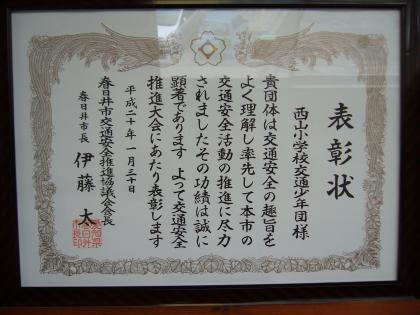 表彰状
西山小学校交通少年団 様
貴団体は交通安全の趣旨を
よく理解し率先して本市の
交通安全活動の推進に尽力
されましたその功績は誠に
顕著であります よって交通安全
推進大会にあたり表彰します
平成二十年一月三十日
春日井市交通安全推進協議会会長
春日井市長 伊藤 太